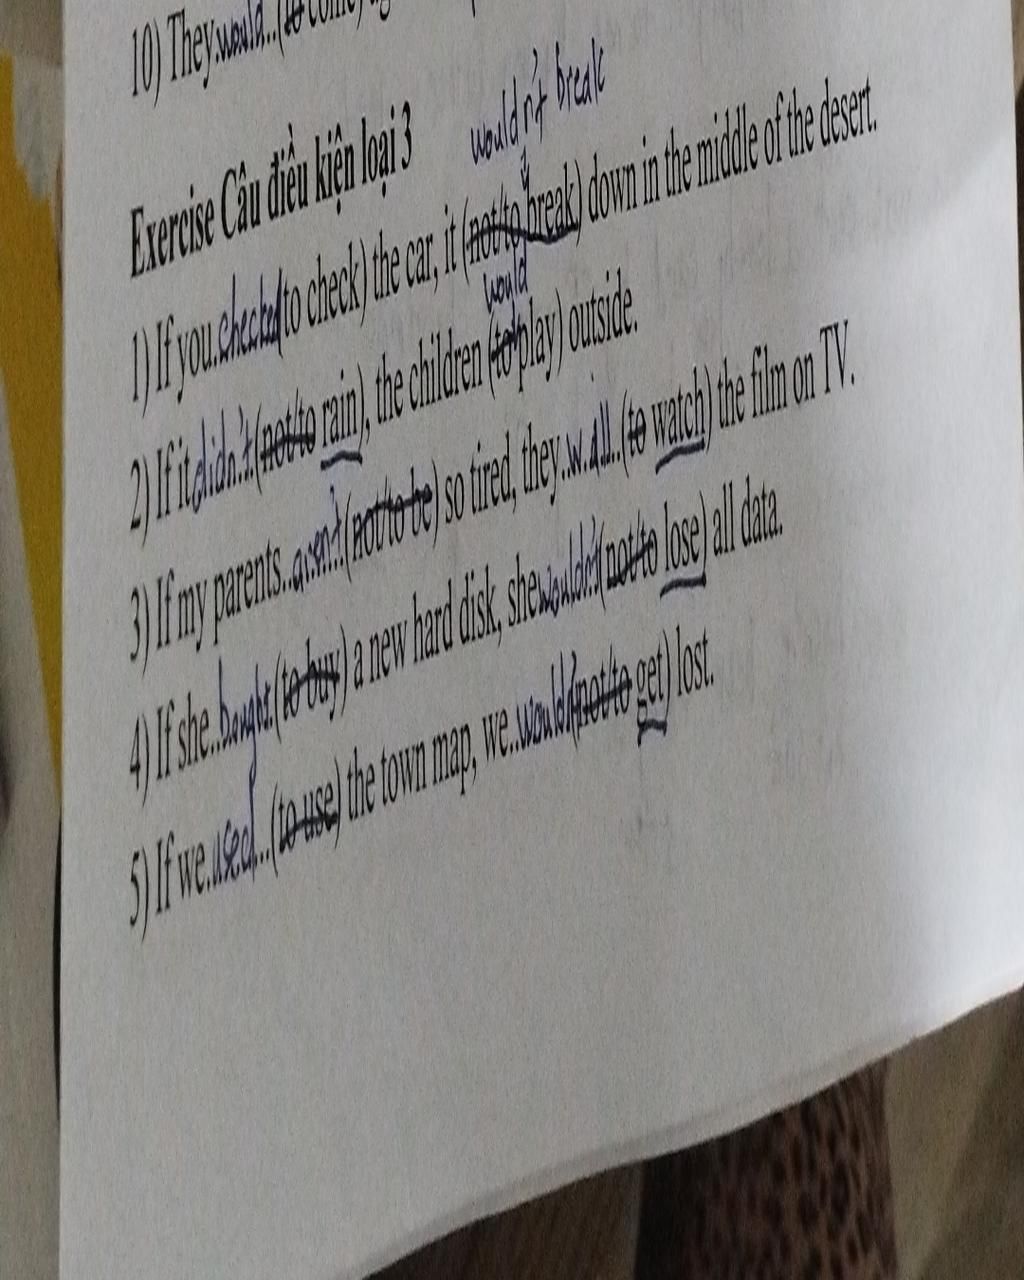 10) They would..(to come)
Exercise Câu điều kiện loại 3
wouldn't break
1) If you.checked(to check) the car, it (not/to break) down in the middle of the desert.
would
2) If it didn't.(not/to rain), the children (to play) outside.
3) If my parents..aren't.(not/to be) so tired, they..will..(to watch) the film on TV.
4) If she..bought.(to buy) a new hard disk, she wouldn't(not/to lose) all data.
5) If we.used...(to use) the town map, we..wouldn't(not/to get) lost.